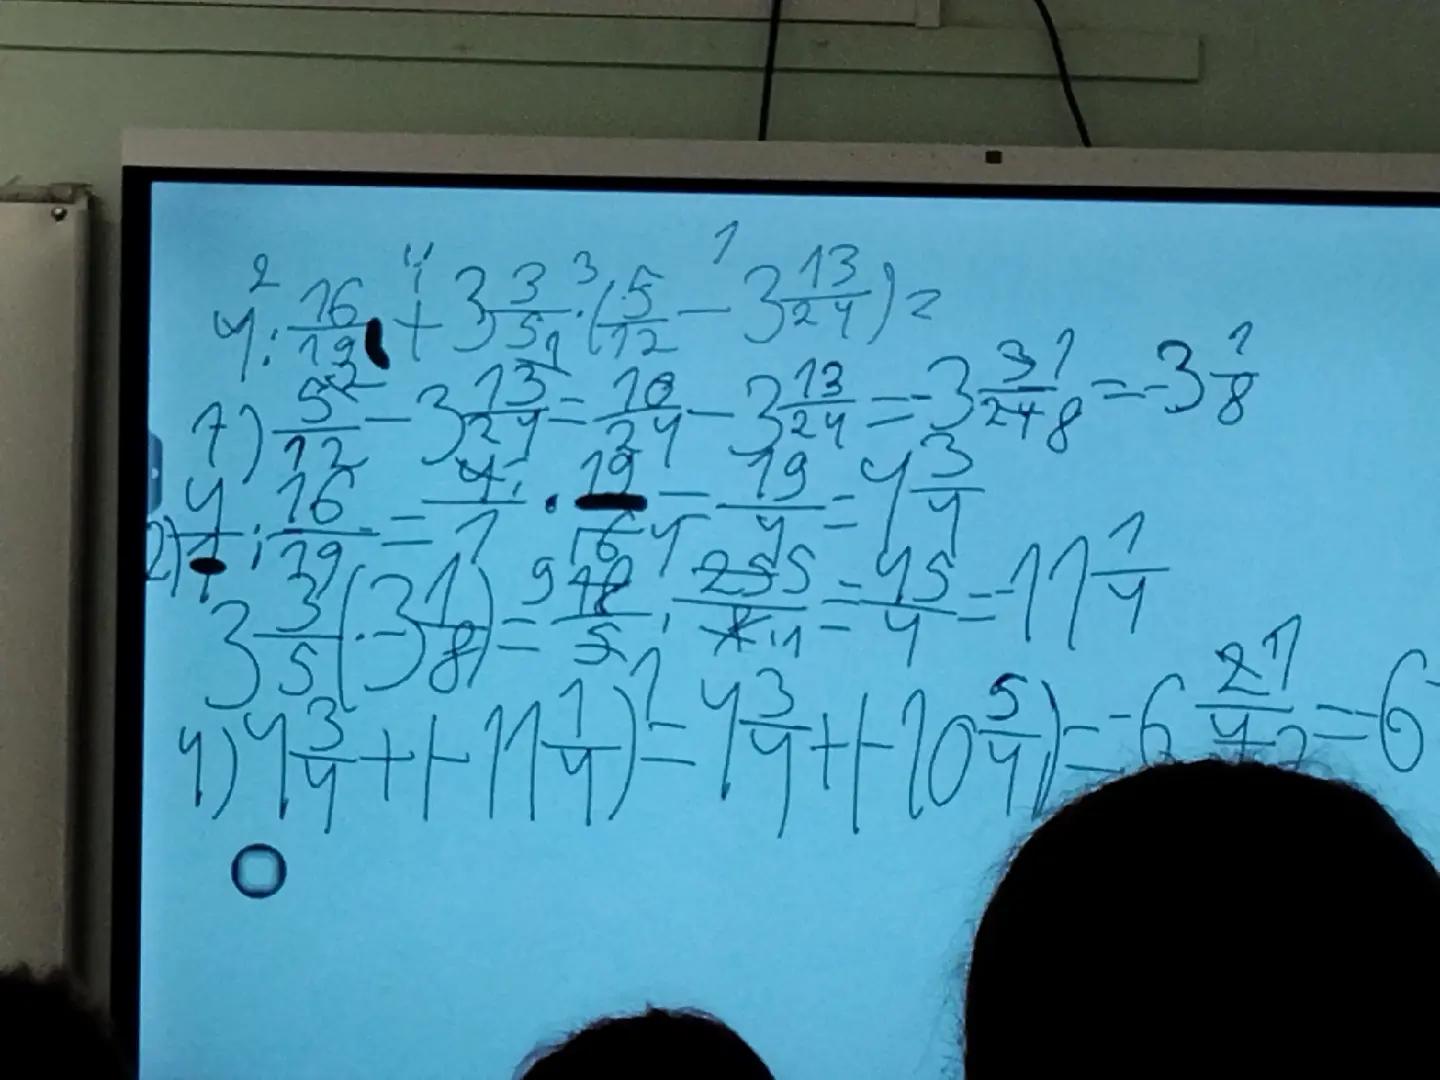 4 : 16/19 + 3 3/5 · (5/12 - 3 13/24) =
1) 5/12 - 3 13/24 = 10/24 - 3 13/24 = -3 3/24 = -3 1/8
2) 4/1 : 16/19 = 4/1 · 19/16 = 19/4 = 4 3/4
3 3/5 · (-3 1/8) = 18/5 · 25/8 = 45/4 = -11 1/4
4) 4 3/4 + (-11 1/4) = 4 3/4 + (-10 5/4) = -6 2/4 = 6